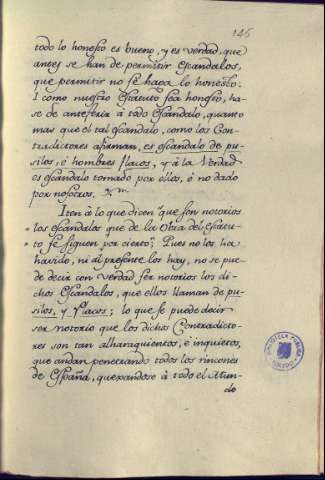 145
todo lo honesto es bueno, y es verdad, que
antes se han de permitir escandalos,
que permitir no se haga lo honesto:
I como nuestro estatuto sea honesto, ha-
se de anteferir à todo escandalo, quanto
mas que el tal escandalo, como los Con-
tradictores afirman, es escandalo de pu-
silos, è hombres flacos, y à la Verdad
es escandalo tomado por ellos, è no dado
por nosotros.
Iten à lo que dicen que son notorios
los escandalos que de la Obra del estatu-
to se siguen por cierto; Pues no los ha
havido, ni al presente los hay, no se pue-
de decir con verdad ser notorios los di-
chos escandalos, que ellos llaman de pu-
silos, y flacos; lo que se puede decir
ser notorio que los dichos Contradicto-
res son tan alharaquientos, è inquietos,
que andan penetrando todos los rincones
de España, quexandose à todo el Mun-
do
BIBLIOTECA PUBLICA
TOLEDO